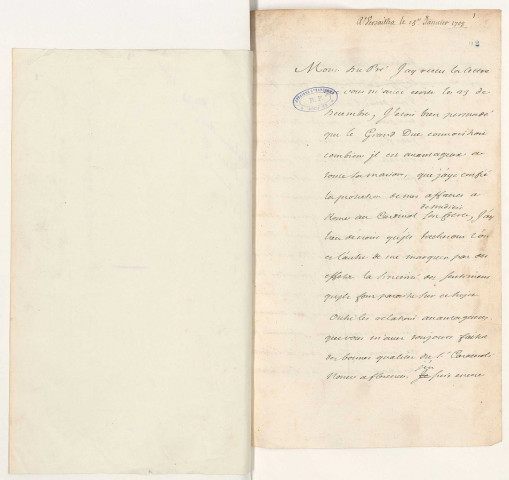 A Versailles le 15e Janvier 1703
1
Mons. Du Pré J'ay receu la lettre
que vous m'avez écrite le 23 de
Decembre, J'estois bien persuadé
que le Grand Duc connoistroit
combien il est avantageux a
toute sa maison, que j'aye confié
la protection de mes affaires a
de medicis
Rome au Cardinal son frere, J'ay
lieu de croire qu'ils tascheront l'un
et l'autre de me marquer par des
effets la sincerité des sentimens
qu'ils font paroistre sur ce sujet
Outre les relations avantageuses
que vous m'avez toujours faites
des bonnes qualitez du Sr
Nonce a florence, J'en suis encore